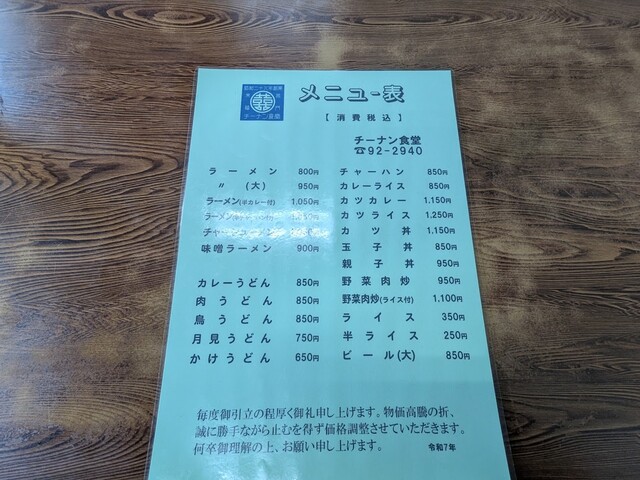 チーナン食堂
メニュー表
【消費税込】
チーナン食堂
☎92-2940
ラーメン 800円
〃 (大) 950円
ラーメン(半カレー付) 1,050円
ラーメン
味噌ラーメン 900円
カレーうどん 850円
肉うどん 850円
鳥うどん 850円
月見うどん 750円
かけうどん 650円
チャーハン 850円
カレーライス 850円
カツカレー 1,150円
カツライス 1,250円
カツ丼 1,150円
玉子丼 850円
親子丼 950円
野菜肉炒 950円
野菜肉炒(ライス付) 1,100円
ライス 350円
半ライス 250円
ビール(大) 850円
毎度御引立の程厚く御礼申し上げます。物価高騰の折、
誠に勝手ながら止むを得ず価格調整させていただきます。
何卒御理解の上、お願い申し上げます。 令和7年